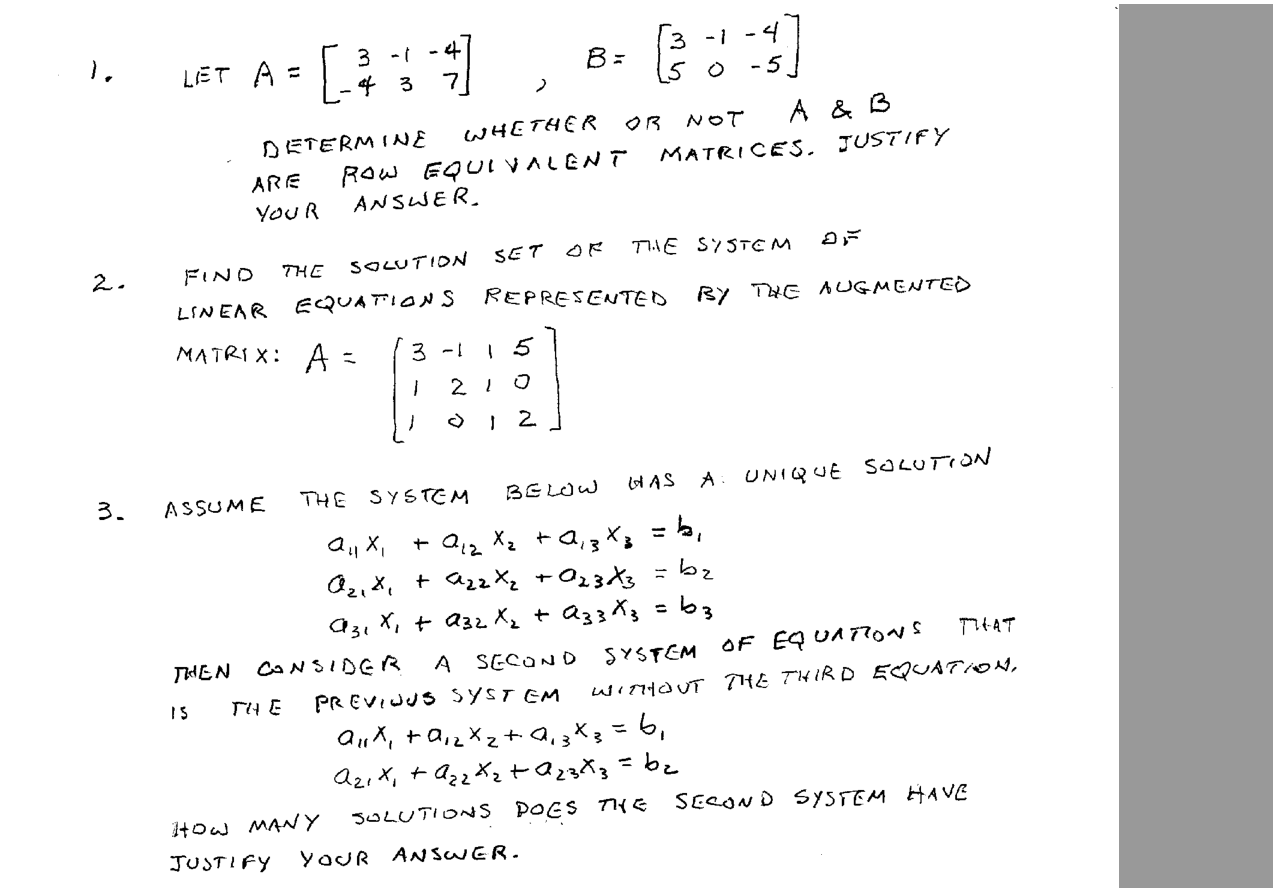 1. LET A = [ 3 -1 -4 ] , B = [ 3 -1 -4 ]
[ -4 3 7 ] [ 5 0 -5 ]
DETERMINE WHETHER OR NOT A & B
ARE ROW EQUIVALENT MATRICES. JUSTIFY
YOUR ANSWER.
2. FIND THE SOLUTION SET OF THE SYSTEM OF
LINEAR EQUATIONS REPRESENTED BY THE AUGMENTED
MATRIX: A = [ 3 -1 1 5 ]
[ 1 2 1 0 ]
[ 1 0 1 2 ]
3. ASSUME THE SYSTEM BELOW HAS A UNIQUE SOLUTION
a₁₁x₁ + a₁₂x₂ + a₁₃x₃ = b₁
a₂₁x₁ + a₂₂x₂ + a₂₃x₃ = b₂
a₃₁x₁ + a₃₂x₂ + a₃₃x₃ = b₃
THEN CONSIDER A SECOND SYSTEM OF EQUATIONS THAT
IS THE PREVIOUS SYSTEM WITHOUT THE THIRD EQUATION.
a₁₁x₁ + a₁₂x₂ + a₁₃x₃ = b₁
a₂₁x₁ + a₂₂x₂ + a₂₃x₃ = b₂
HOW MANY SOLUTIONS DOES THE SECOND SYSTEM HAVE
JUSTIFY YOUR ANSWER.